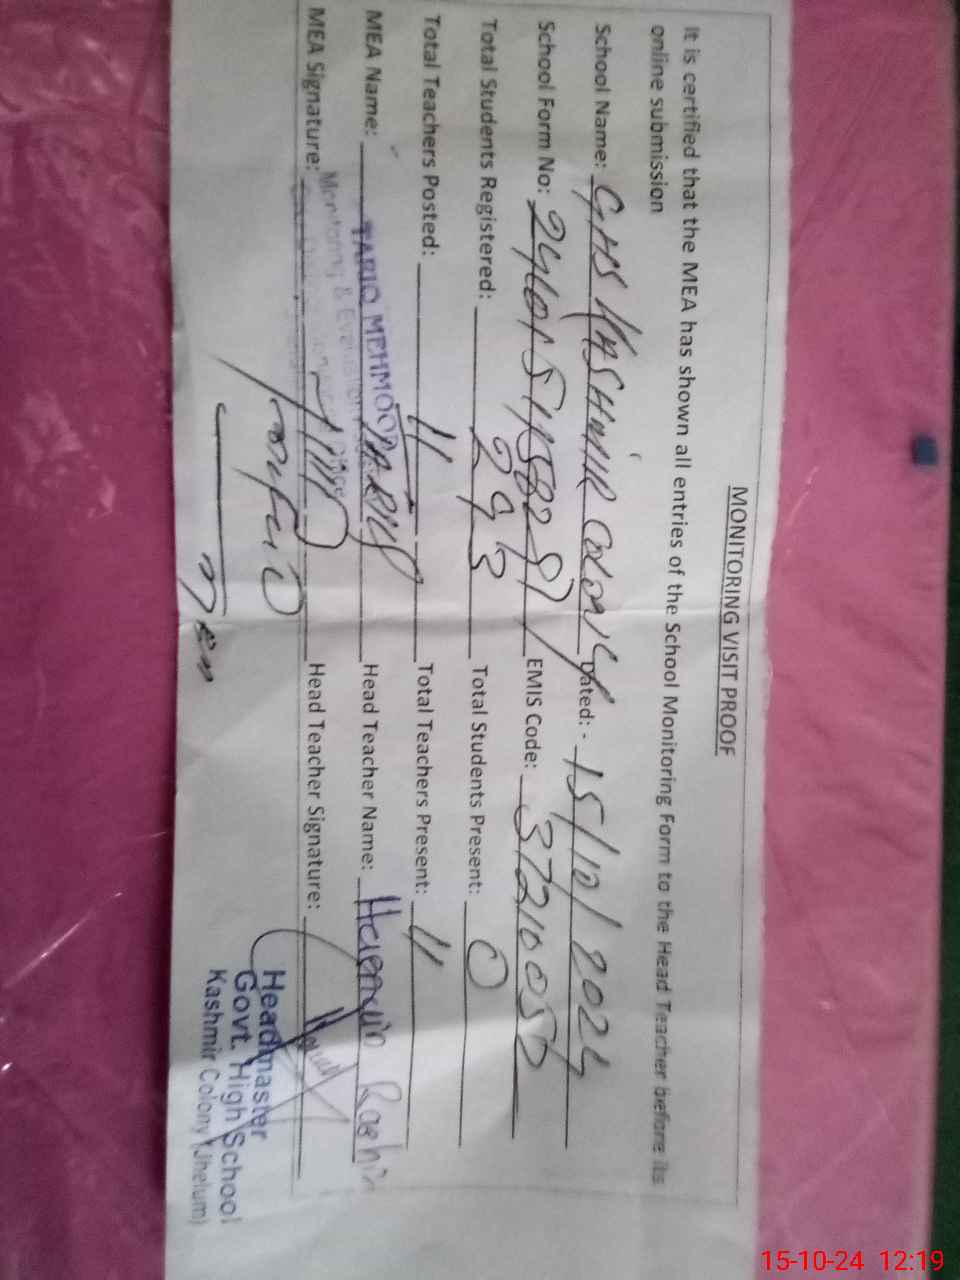 MONITORING VISIT PROOF
It is certified that the MEA has shown all entries of the School Monitoring Form to the Head Teacher before its
online submission
School Name: GHS KASHMIR COLONY Dated: - 15/10/2024
School Form No: EMIS Code: 37210050
Total Students Registered: 293 Total Students Present: 0
Total Teachers Posted: 11 Total Teachers Present: 11
MEA Name: TARIQ MEHMOOD Head Teacher Name:
Monitoring & Evaluation
MEA Signature: Head Teacher Signature:
Headmaster
Govt. High School
Kashmir Colony (Jhelum)
15-10-24 12:19